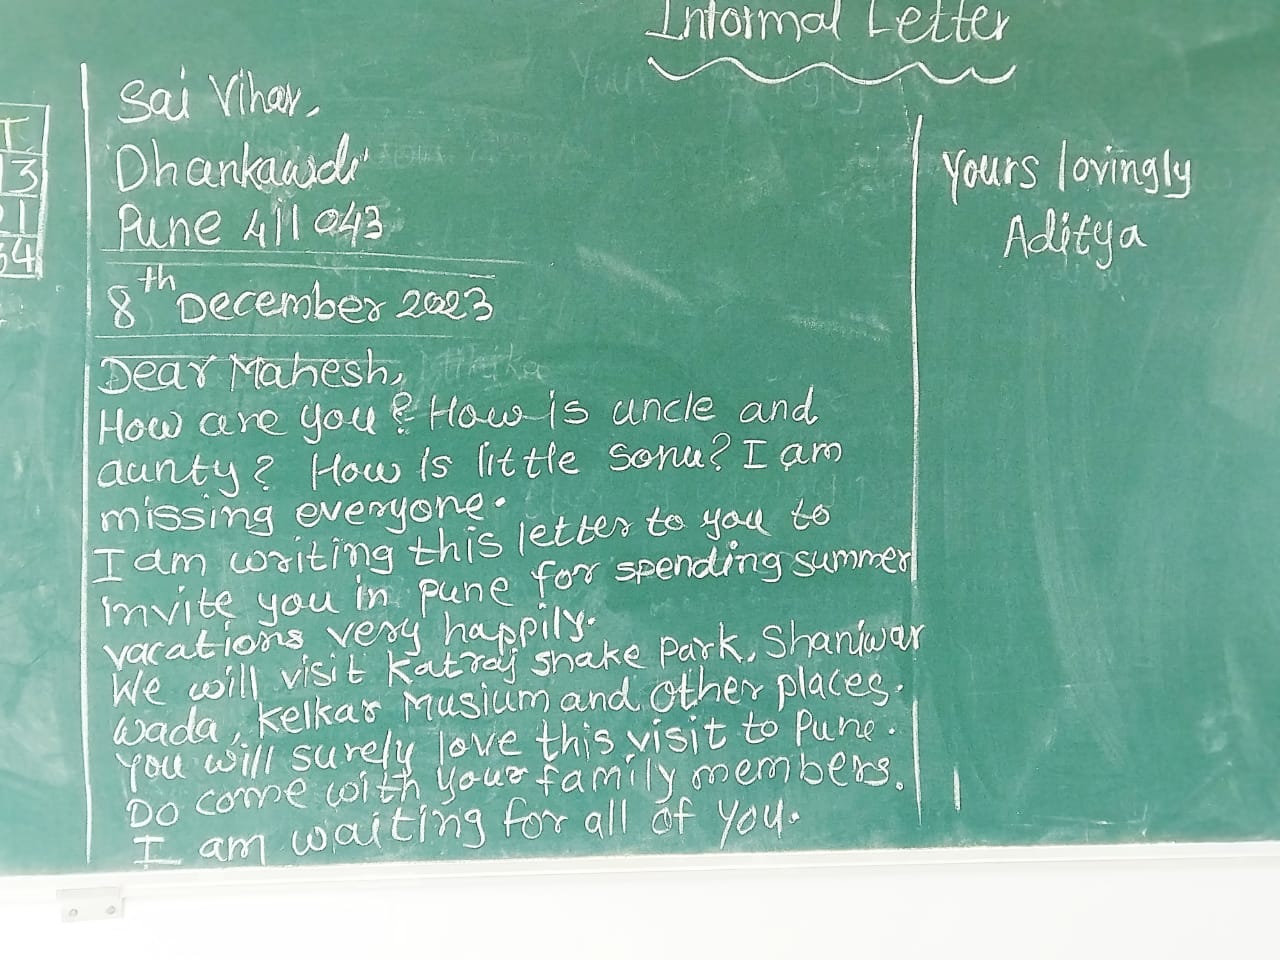 Informal Letter
Sai Vihar,
Dhankawdi
Pune 411 043
8th December 2023
Dear Mahesh,
How are you? How is uncle and
aunty? How is little sonu? I am
missing everyone.
I am writing this letter to you to
invite you in pune for spending summer
vacations very happily.
We will visit Katraj snake park, Shaniwar
wada, Kelkar Musium and other places.
you will surely love this visit to Pune.
Do come with your family members.
I am waiting for all of you.
Yours lovingly
Aditya